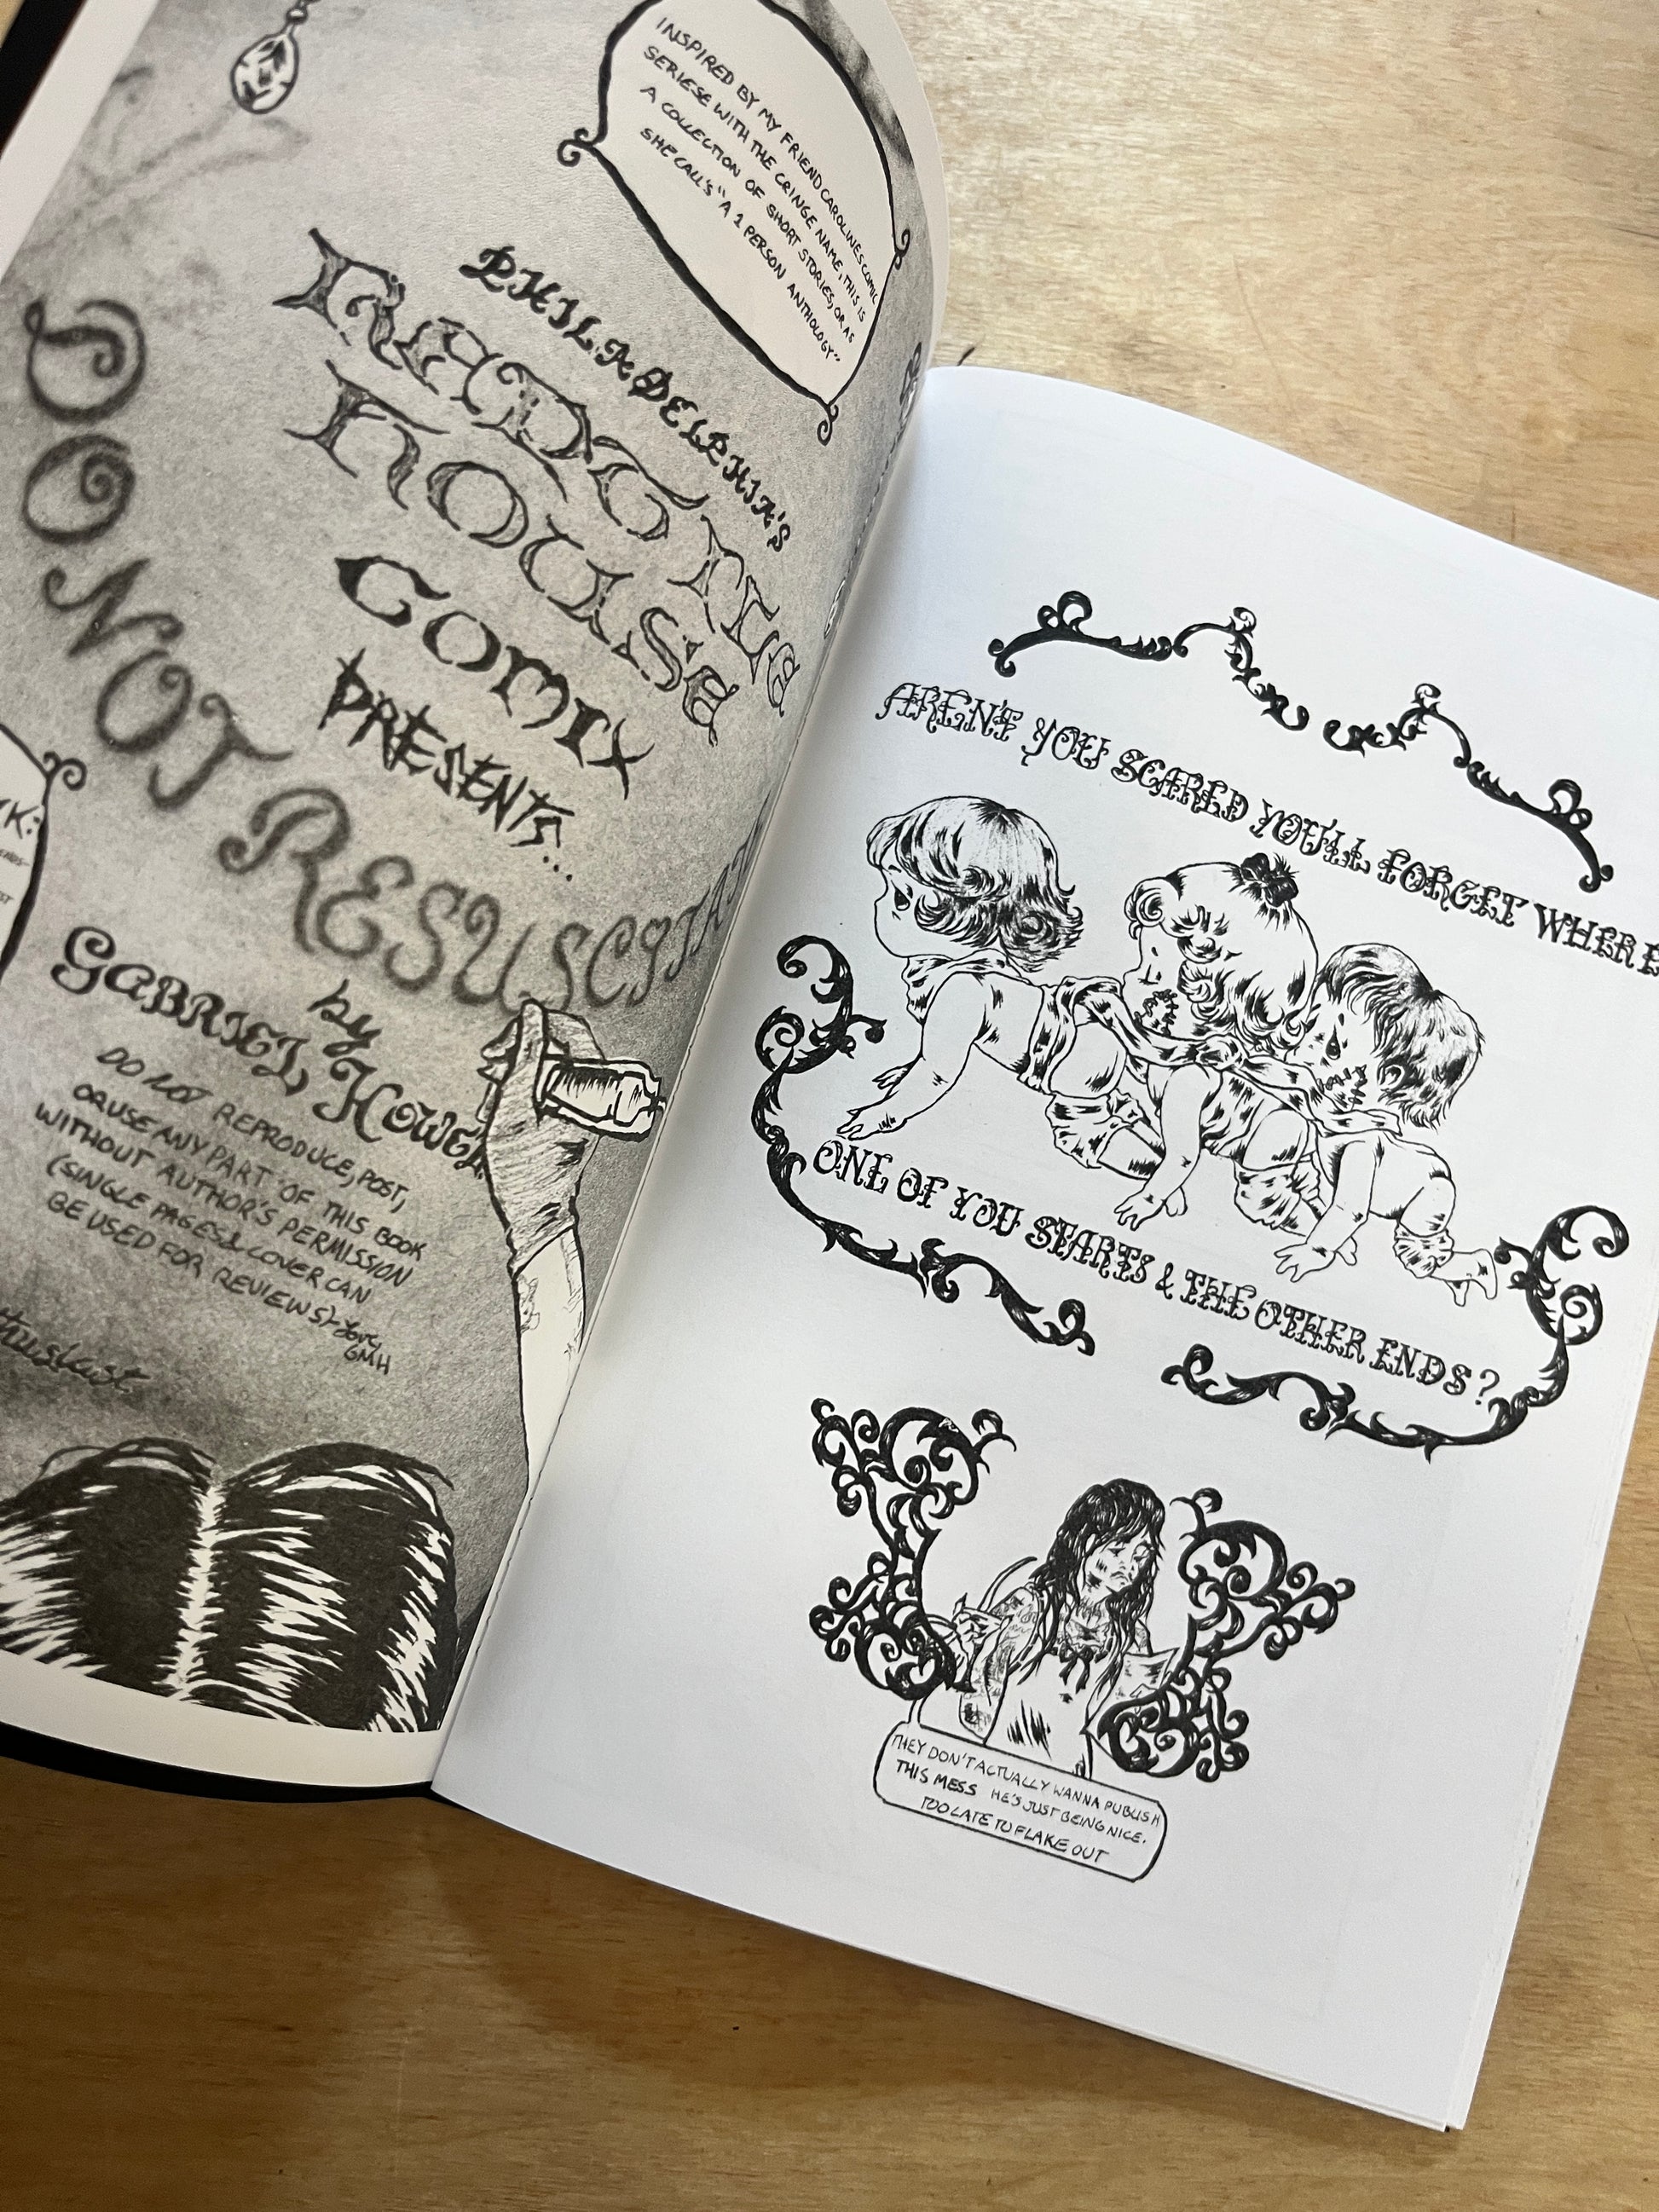 INSPIRED BY MY FRIEND CAROLINES COMIC
SERIESE WITH THE CRINGE NAME, THIS IS
A COLLECTION OF SHORT STORIES, OR AS
SHE CALL'S "A 1 PERSON ANTHOLOGY"
PHILADELPHIA'S
READING
HOUSE
COMIX
PRESENTS...
DO NOT RESUSCITAT
by
GABRIEL HOWEL
DO NOT REPRODUCE, POST,
OR USE ANY PART OF THIS BOOK
WITHOUT AUTHOR'S PERMISSION
(SINGLE PAGES & COVER CAN
BE USED FOR REVIEWS) - Love,
GMH
AREN'T YOU SCARED YOU'LL FORGET WHERE
ONE OF YOU STARTS & THE OTHER ENDS?
THEY DON'T ACTUALLY WANNA PUBLISH
THIS MESS HE'S JUST BEING NICE.
TOO LATE TO FLAKE OUT